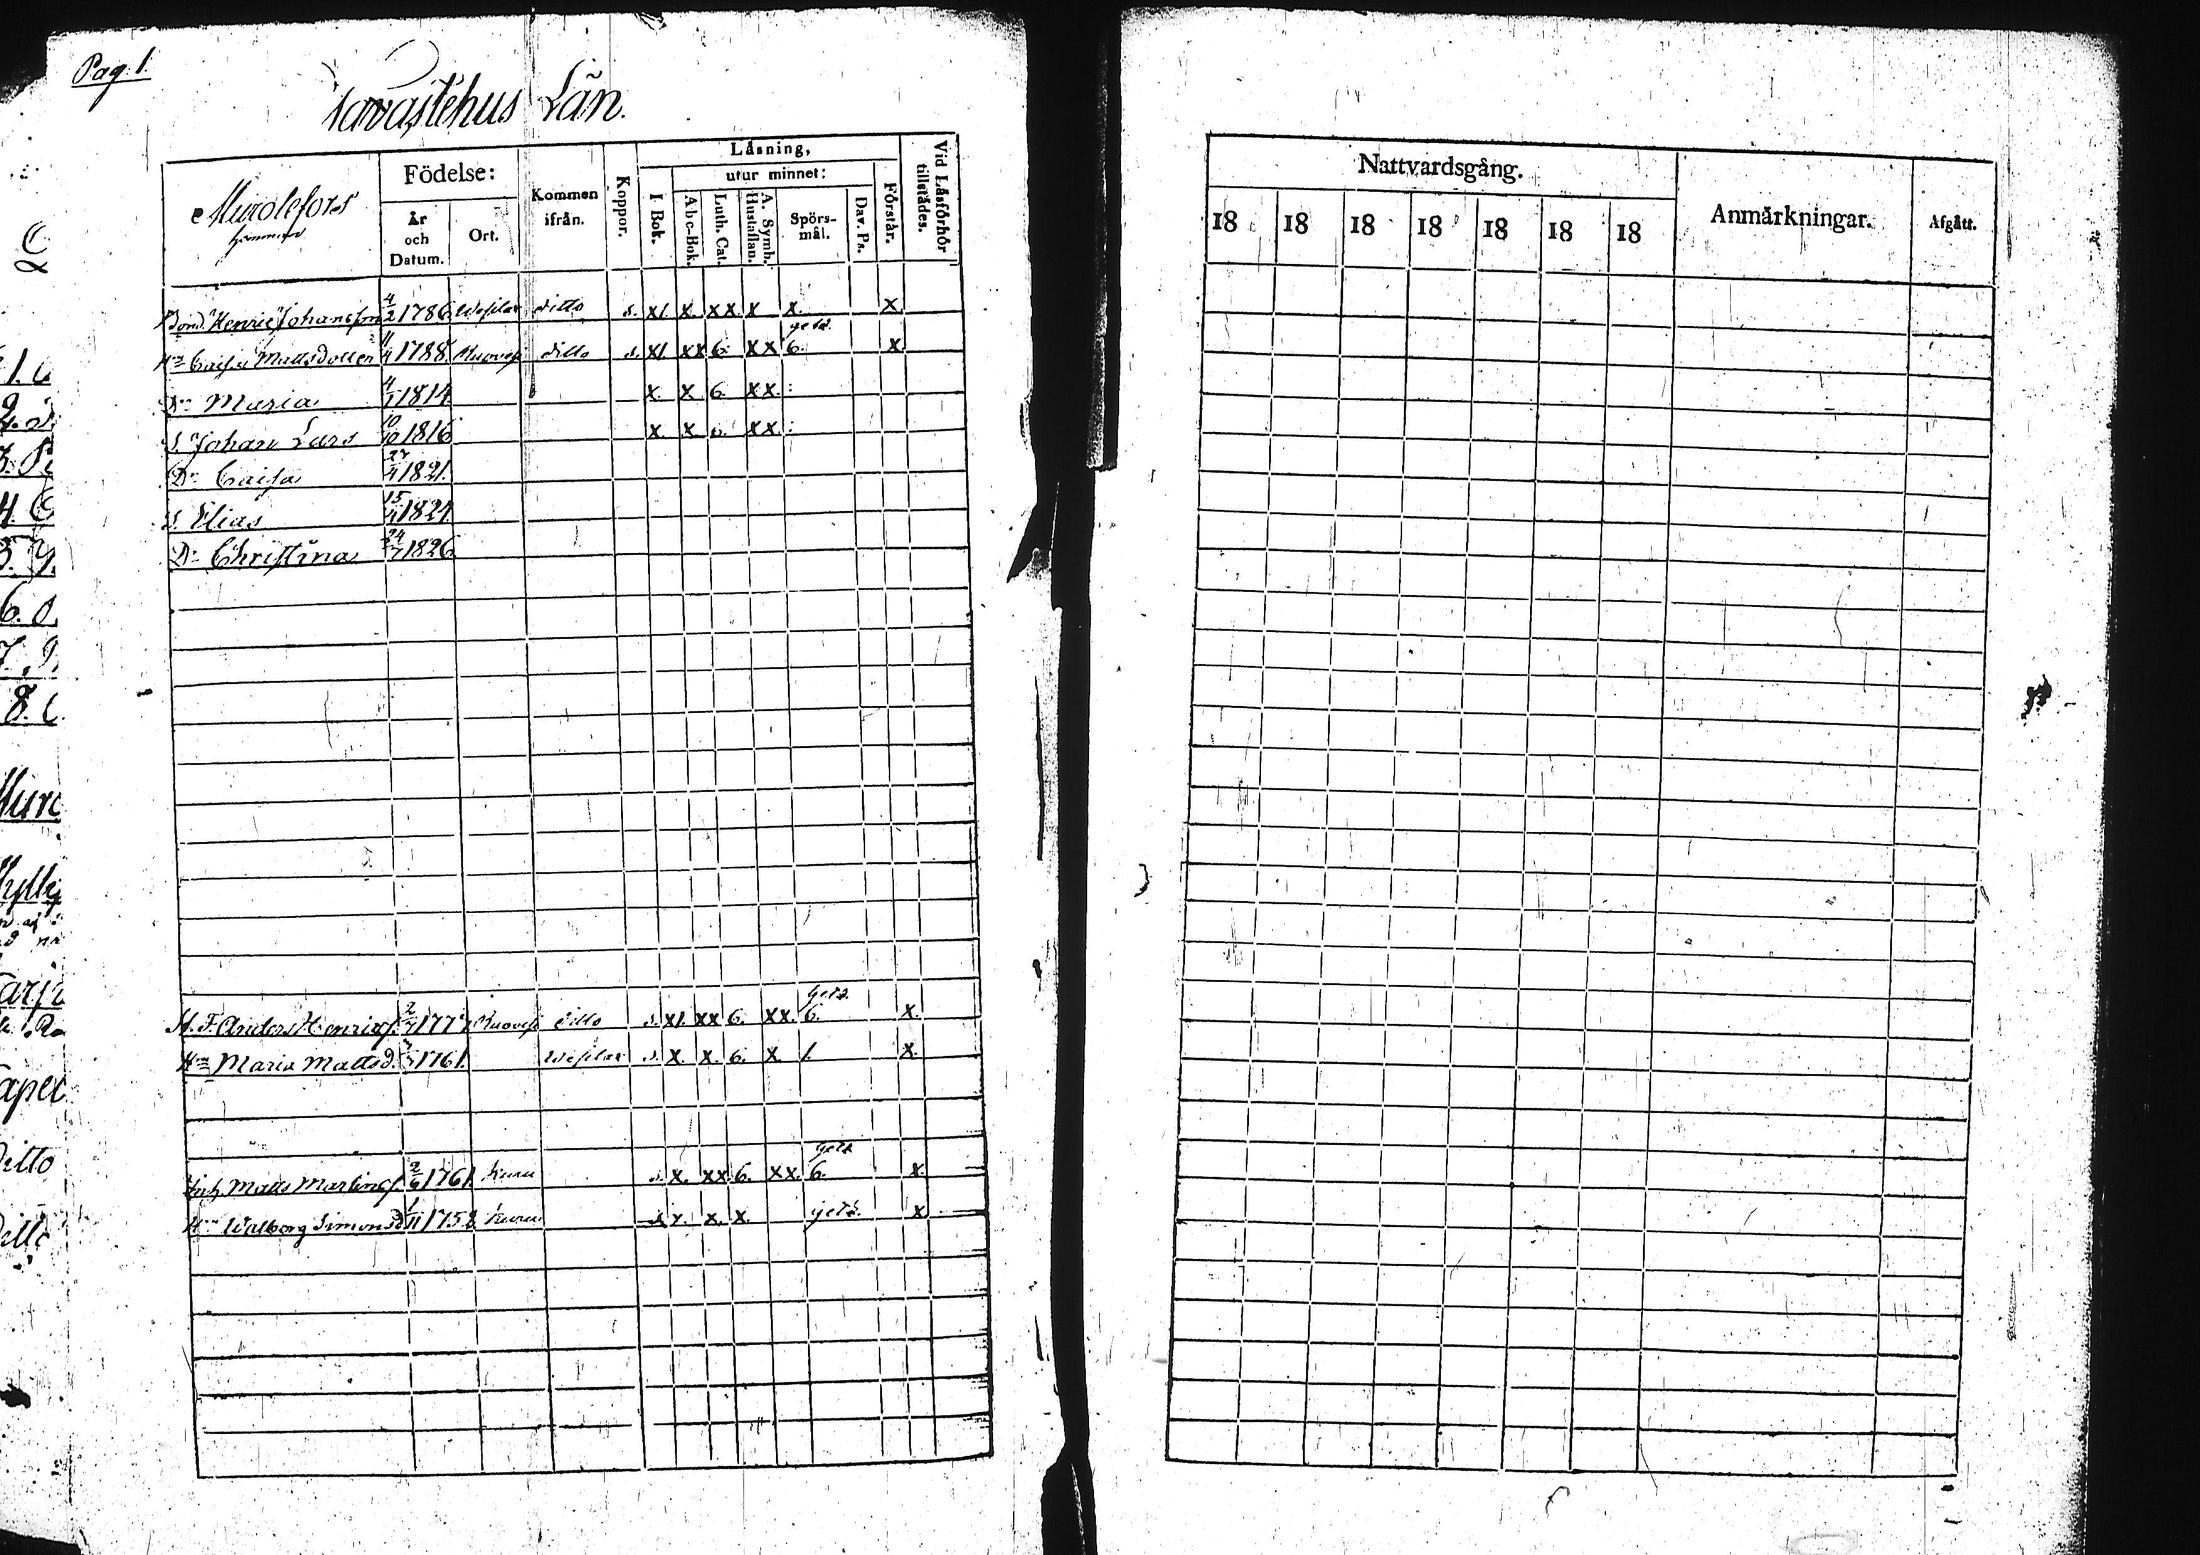 Pag. 1.
Tavastehus Län.
Murolefors
hemman
Födelse:
År och Datum.
Ort.
Kommen ifrån.
Koppor.
Läsning,
I Bok.
utur minnet:
Abc-Bok.
Luth. Cat.
A. Symb. Hustaflan.
Spörs-mål.
Dav. Ps.
Förstår.
Vid Läsförhör tillstädes.
Nattvardsgång.
18 18 18 18 18 18 18
Anmärkningar.
Afgått.
Bond. Henric Johansson 4/2 1786. Wesilax ditto s. x1. x. xx. x x. x
geds.
H:u Caisa Mattsdotter 11/4 1788. Ruovesi ditto s. x1. xx 6. xx 6. x
D:r Maria 4/1 1814 x. x 6. xx.
S. Johan Lars 10/10 1816 x. x. 6. xx.
D:r Caisa 27/4 1821.
S. Elias 15/4 1824
D:r Christina 24/7 1826
geds.
Anders Henrics. Ruovesi ditto s. x1. xx 6. xx. 6. x.
H:u Maria Mattsd. 1761. Wesilax s. x. x. 6. x. 1. x.
geds
Inh. Matts Martins. 2/6 1761 Kuru s. x. xx. 6. xx. 6. x.
H:u Walborg Simonsd. 1/11 1758 Kuru x. x. geds. x